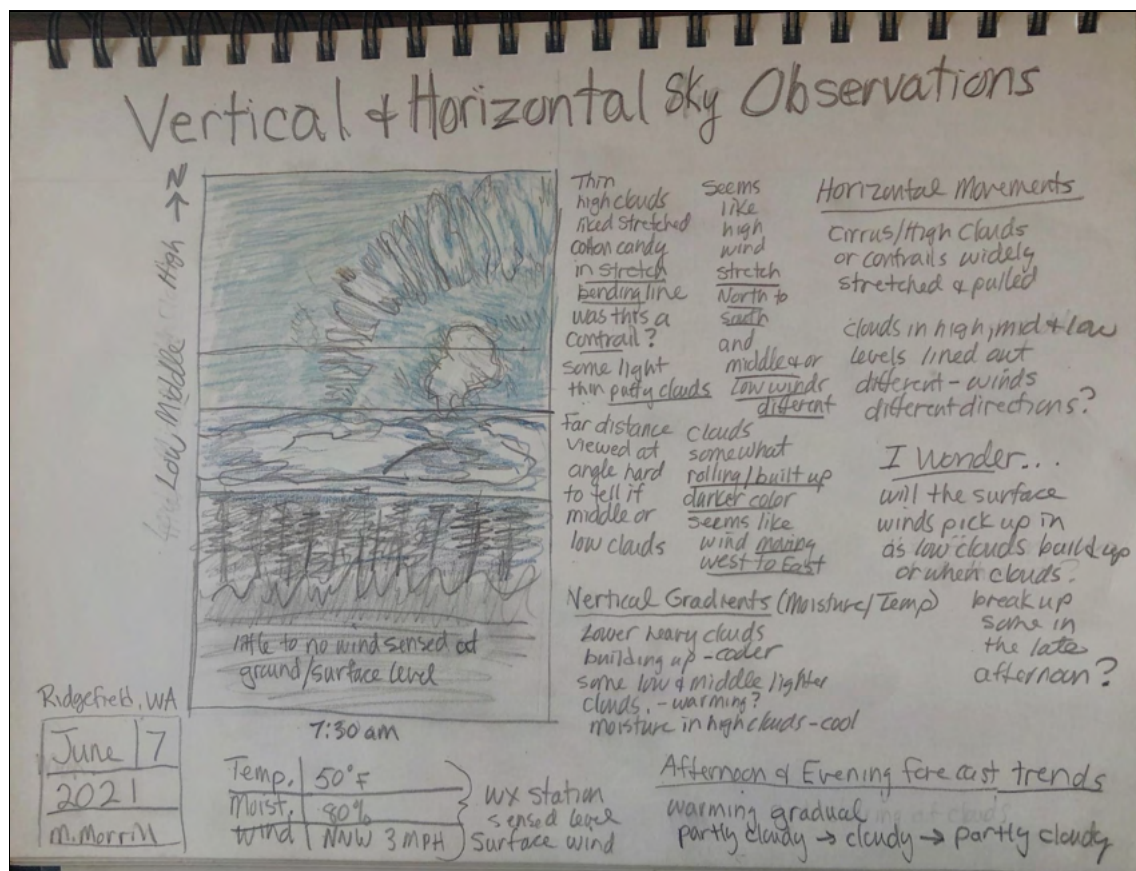 Vertical & Horizontal Sky Observations
High → N
Middle
Low
Thin
high clouds
liked stretched
cotton candy
in stretch
bending line
was this a
contrail?
some light
thin puffy clouds
Seems
like
high
wind
stretch
North to
south
and
middle & or
low winds
different
Far distance
viewed at
angle hard
to tell if
middle or
low clouds
clouds
somewhat
rolling/built up
darker color
seems like
wind moving
west to East
Horizontal Movements
cirrus/High Clouds
or contrails widely
stretched & pulled
clouds in high, mid & low
levels lined out
different - winds
different directions?
I Wonder...
will the surface
winds pick up in
as low clouds build up
or when clouds.
break up
some in
the late
afternoon?
Vertical Gradients (Moisture/Temp)
Lower heavy clouds
building up - cooler
some low & middle lighter
clouds. - warming?
moisture in high clouds - cool
little to no wind sensed at
ground/surface level
Ridgefield, WA
June 7
2021
M. Morrill
7:30 am
Temp. 50°F
Moist. 80%
Wind NNW 3 MPH
WX Station
sensed level
Surface wind
Afternoon & Evening forecast trends
warming gradual
partly cloudy → cloudy → partly cloudy